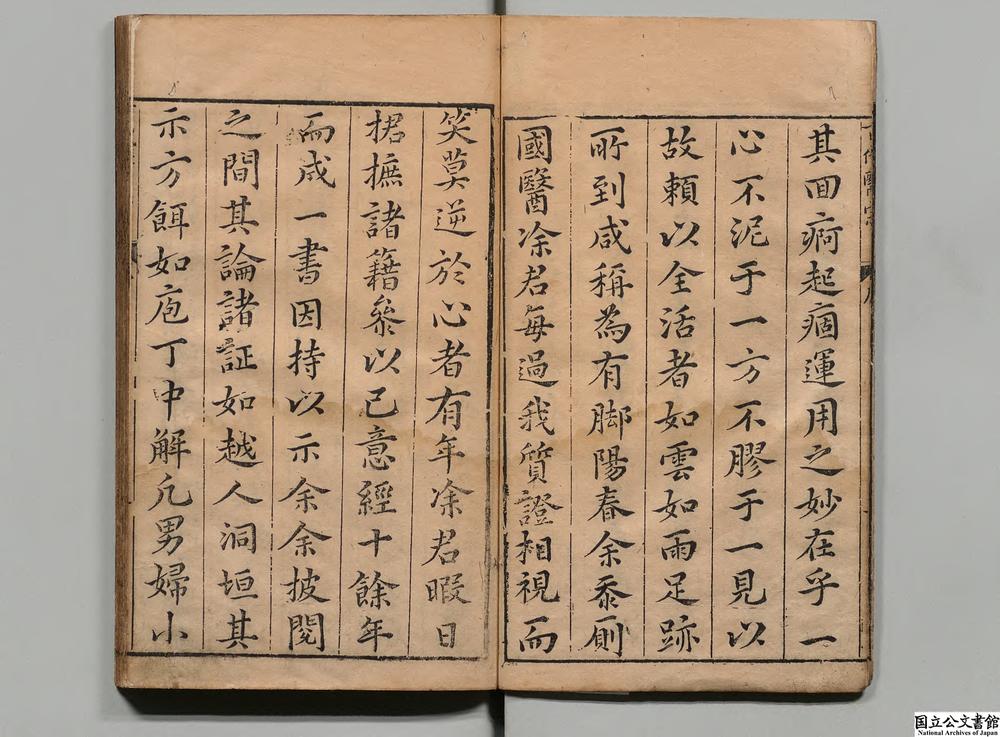 其囬痾起痼運用之妙在乎一
心不泥于一方不膠于一見以
故頼以全活者如雲如雨足跡
所到咸稱為有脚陽春余忝厠
國醫凃君每過我質證相視而
笑莫逆於心者有年凃君暇日
捃摭諸籍叅以己意經十餘年
而成一書因持以示余余披閱
之間其論諸証如越人洞垣其
示方餌如庖丁中解凢男婦小
国立公文書館
National Archives of Japan